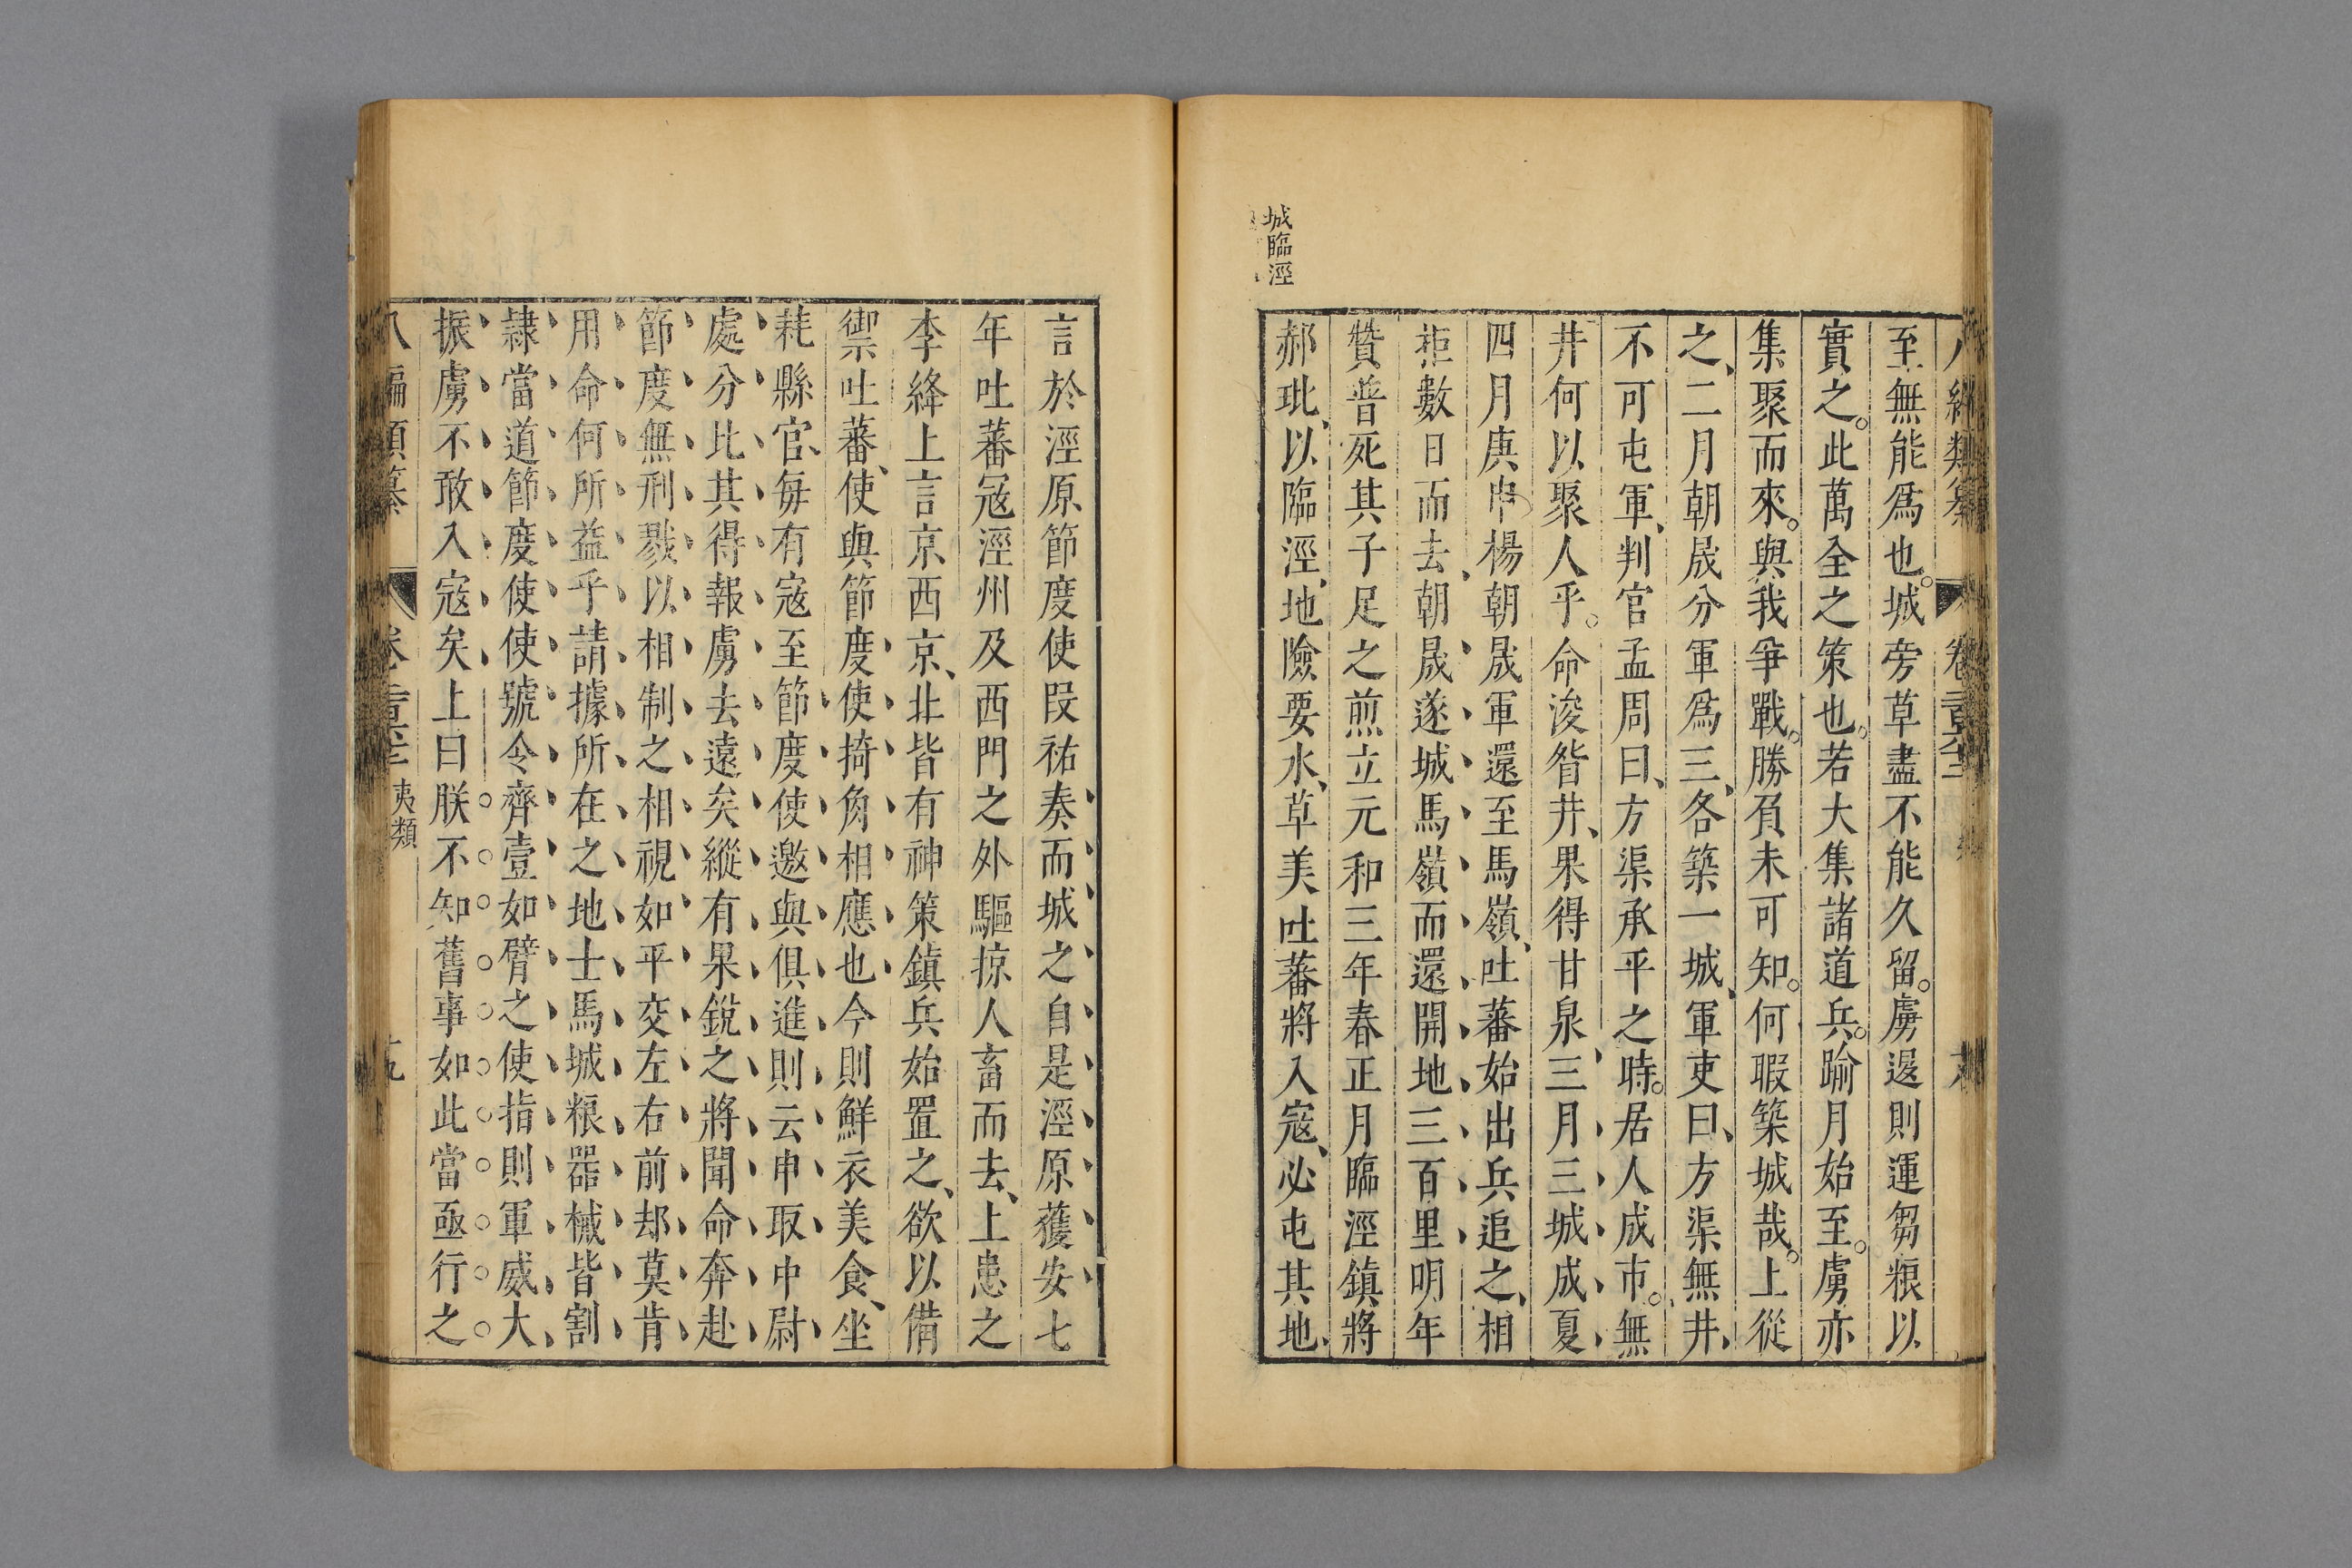 城臨涇
至無能爲也。城旁草盡不能久留。虜退則運芻粮以
實之。此萬全之策也。若大集諸道兵。踰月始至。虜亦
集聚而來。與我爭戰。勝負未可知。何暇築城哉。上從
之、二月朝晟分軍爲三、各築一城、軍吏曰、方渠無井、
不可屯軍、判官孟周曰、方渠承平之時。居人成市。無
井何以聚人乎。命浚眢井、果得甘泉、三月三城成夏
四月庚申楊朝晟軍還至馬嶺、吐蕃始出兵追之、相
拒數日而去、朝晟遂城馬嶺而還開地三百里明年
贊普死其子足之煎立元和三年春正月臨涇鎮將
郝玭、以臨涇、地險要水、草美吐蕃將入寇、必屯其地、
言於涇原節度使段祐奏而城之自是涇原獲安七
年吐蕃冦涇州及西門之外驅掠人畜而去、上患之
李絳上言京西京、北皆有神策鎮兵始置之、欲以備
禦吐蕃、使與節度使掎角相應也今則鮮衣美食、坐
耗縣官、每有寇至節度使邀與俱進則云申取中尉
處分比其得報虜去遠矣縱有果銳之將聞命奔赴
節度無刑戮以相制之相視如平交左右前却莫肯
用命何所益乎請據所在之地士馬城粮器械皆割
隷當道節度使使號令齊壹如臂之使指則軍威大
振虜不敢入寇矣上曰朕不知舊事如此當亟行之
夷類